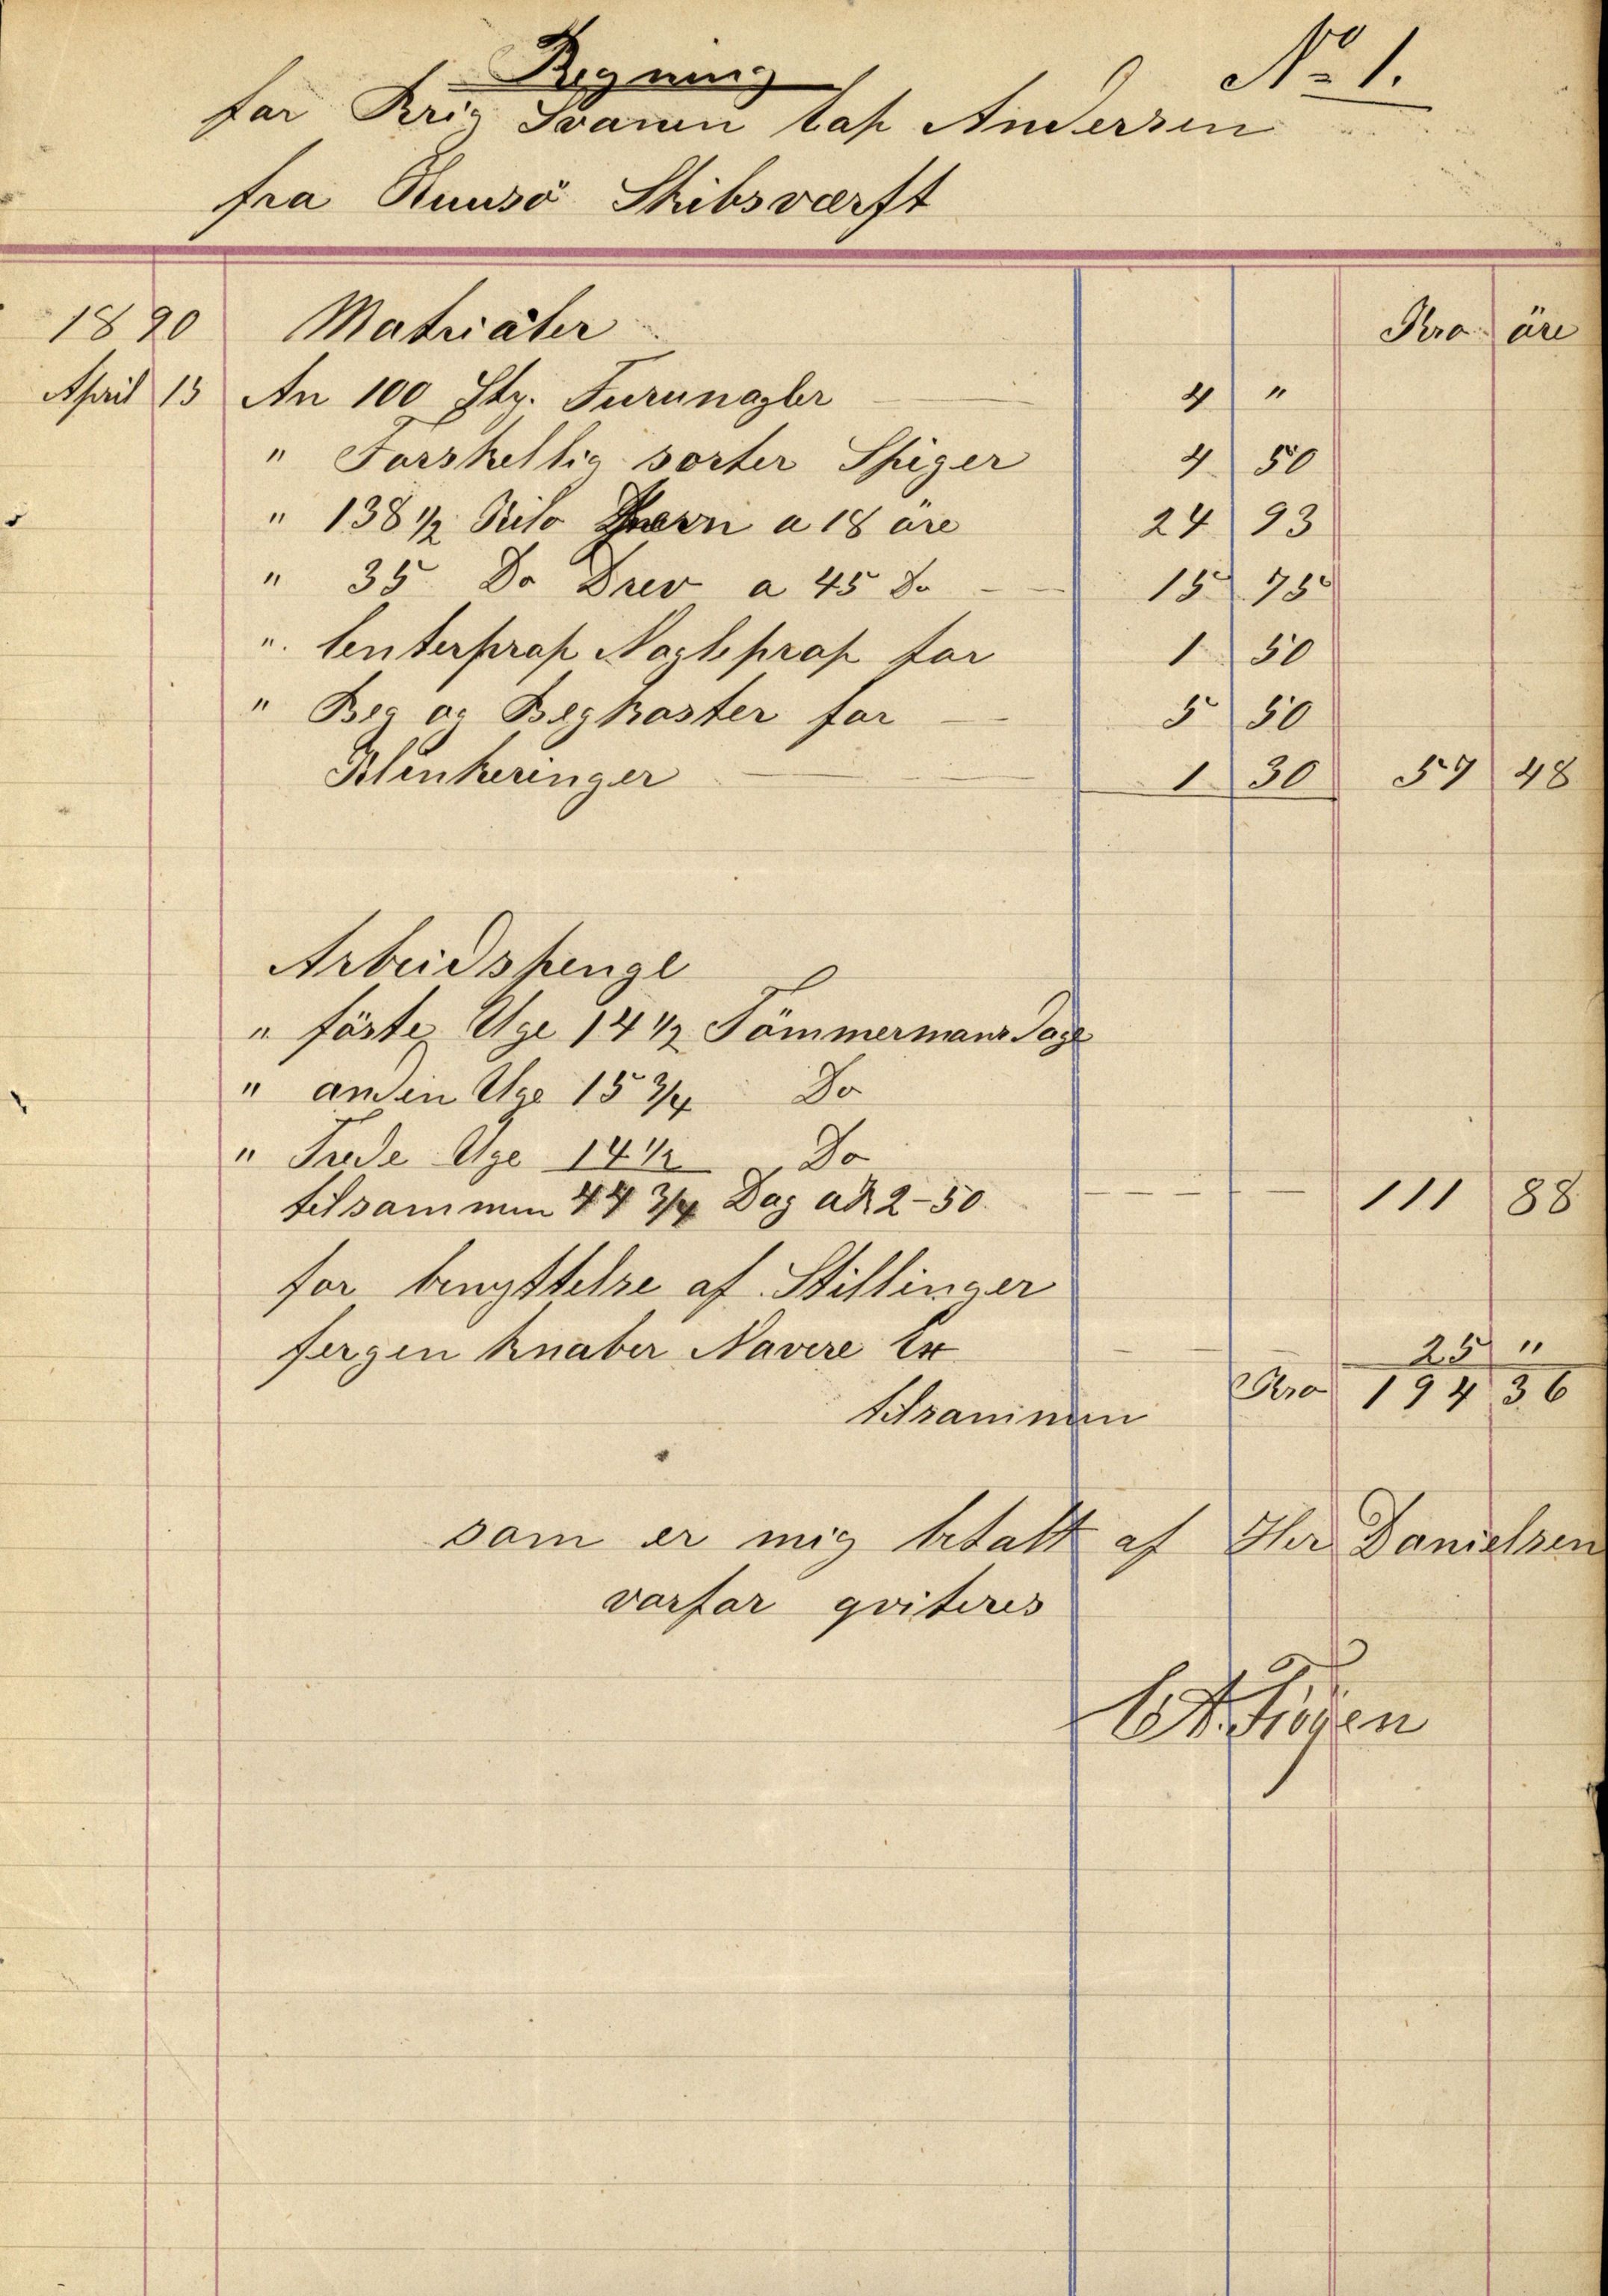 Regning
No 1.
for Brig Svanen Cap Andersen
fra Huusö Skibsværft
1890 Matriäler Kro öre
April 13 An 100 Sty. Furunagler 4 "
" Forskellig sorter Spiger 4 50
" 138 1/2 Kilo Jærn a 18 öre 24 93
" 35 Do Drev a 45 Do 15 75
" Centerprop Nagleprop for 1 50
" Beg og Begkoster for 5 50
Klinkeringer 1 30 57 48
Arbeidspenge
" förste Uge 14 1/2 Tömmermans Dage
" anden Uge 15 3/4 Do
" Trede Uge 14 1/2 Do
tilsammen 44 3/4 Dag a K 2-50 111 88
for benyttelse af Stillinger
fergen knaber Navere 25 "
tilsammen Kro 194 36
som er mig betalt af Her Danielsen
vorfor qviteres